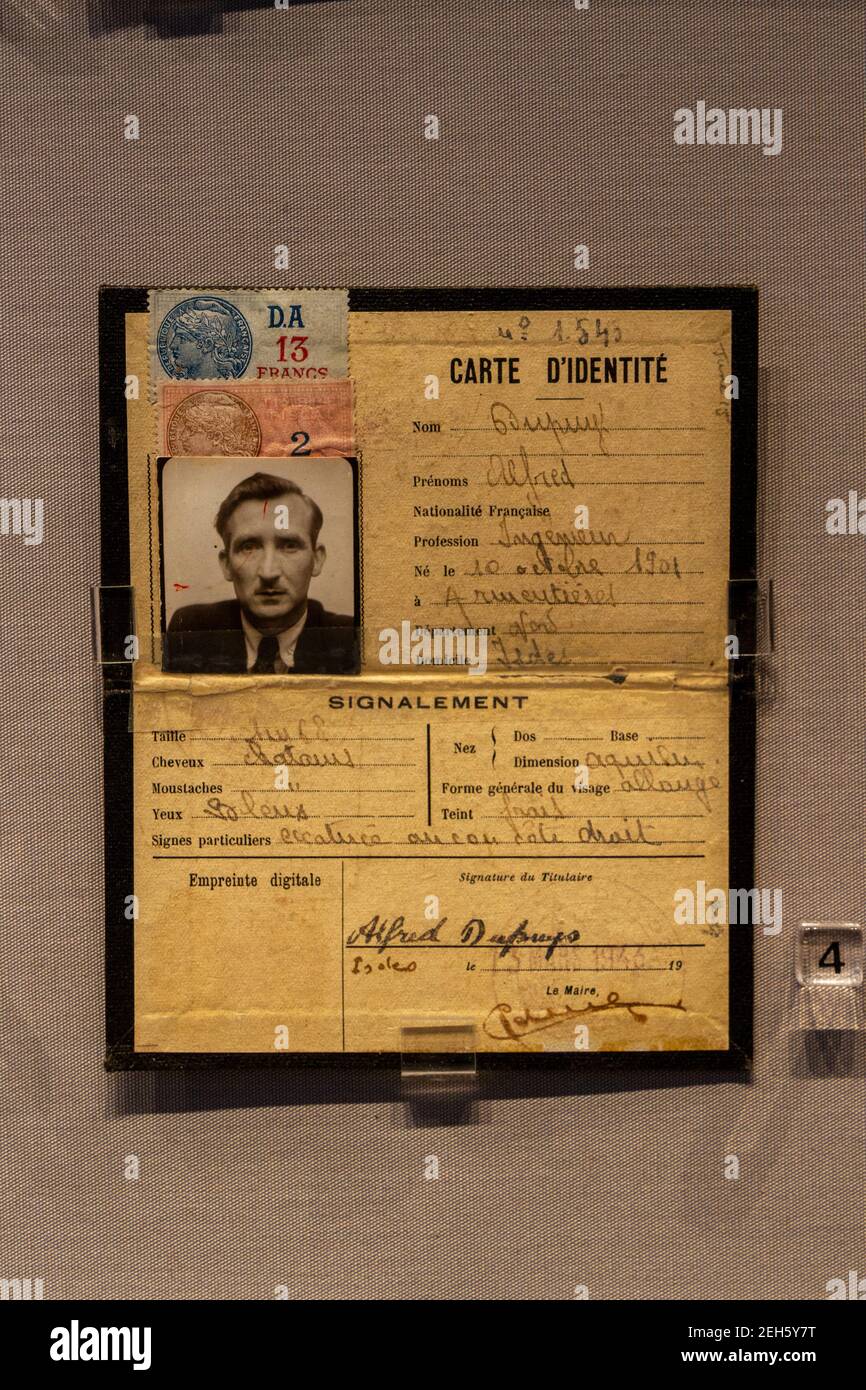 D.A
13
FRANCS
2
nº 1.543
CARTE D'IDENTITÉ
Nom Dupuy
Prénoms Alfred
Nationalité Française
Profession Ingénieur
Né le 10 octobre 1901
à Armentières
Département Nord
Domicile Isdes
SIGNALEMENT
Taille
Cheveux chatains
Moustaches
Yeux Bleus
Signes particuliers cicatrice au cou côté droit
Nez Dos Base
Dimension
Forme générale du visage allongé
Teint frais
Empreinte digitale
Signature du Titulaire
Alfred Dupuys
Isdes le 19
Le Maire,
4
alamy
a
alamy
Image ID: 2EH5Y7T
www.alamy.com